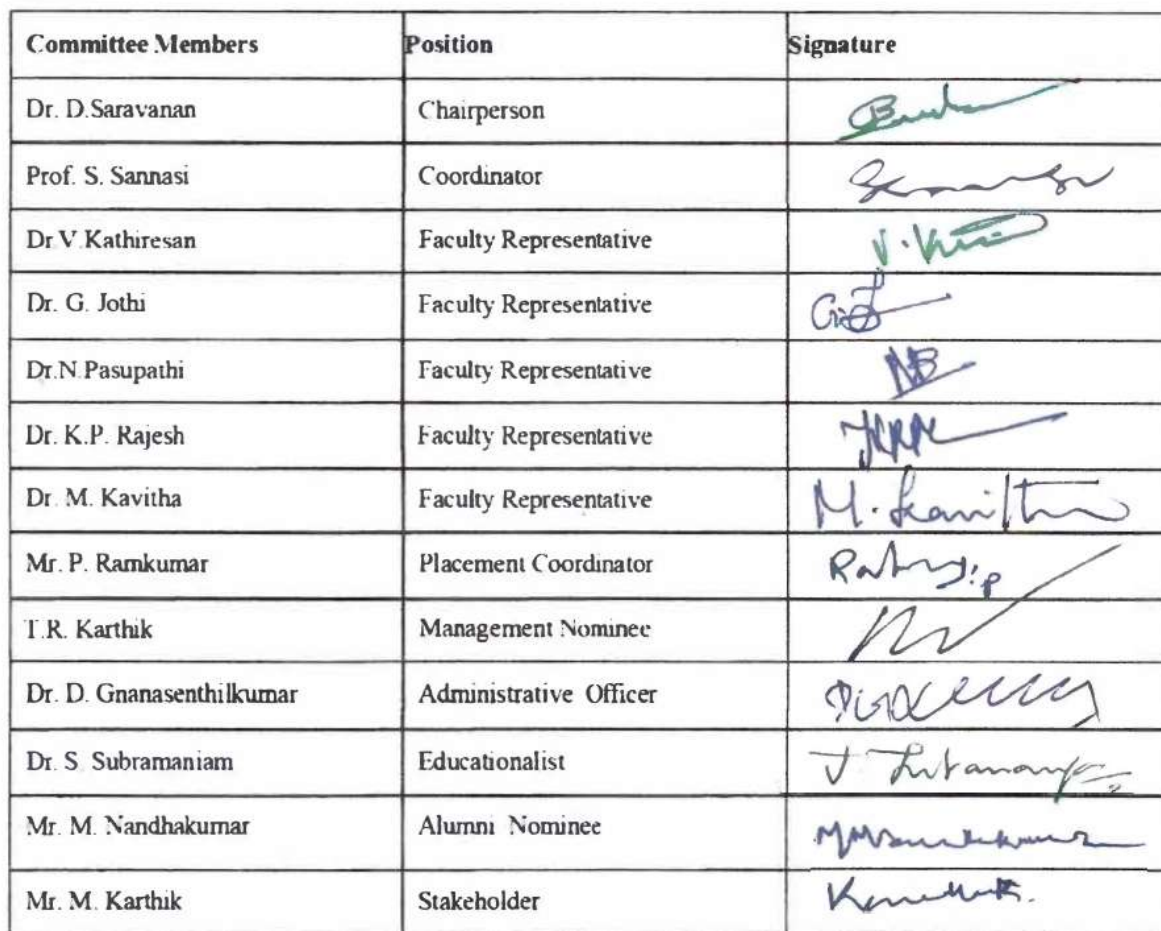 Committee Members Position Signature
Dr. D.Saravanan Chairperson
Prof. S. Sannasi Coordinator
Dr.V.Kathiresan Faculty Representative V.
Dr. G. Jothi Faculty Representative
Dr.N.Pasupathi Faculty Representative
Dr. K.P. Rajesh Faculty Representative
Dr. M. Kavitha Faculty Representative M.
Mr. P. Ramkumar Placement Coordinator
T.R. Karthik Management Nominee
Dr. D. Gnanasenthilkumar Administrative Officer
Dr. S. Subramaniam Educationalist
Mr. M. Nandhakumar Alumni Nominee
Mr. M. Karthik Stakeholder